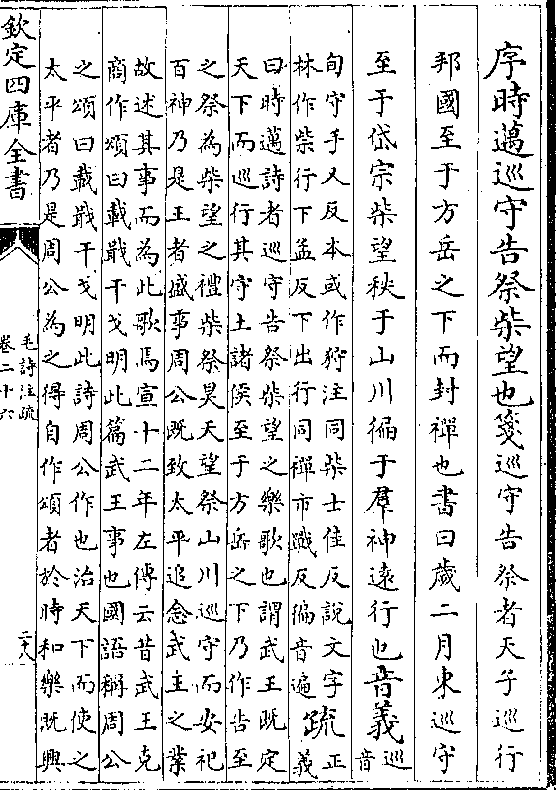 序時邁巡守告祭柴望也箋巡守告祭者天子巡行
邦國至于方岳之下而封禪也書曰歲二月東巡守
至于岱宗柴望秩于山川徧于羣神逺行也音義巡音
旬守手又反本或作狩注同柴士佳反說文字
林作柴行下孟反下出行同禪市戰反徧音遍疏正義
曰時邁詩者巡守告祭柴望之樂歌也謂武王既定
天下而巡行其守土諸侯至于方岳之下乃作告至
之祭為柴望之禮柴祭昊天望祭山川巡守而安祀
百神乃是王者盛事周公既致太平追念武王之業
故述其事而為此歌焉宣十二年左傳云昔武王克
商作頌曰載戢干戈明此篇武王事也國語稱周公
之頌曰載戢干戈明此詩周公作也治天下而使之
太平者乃是周公為之得自作頌者於時和樂既興
欽定四庫全書
毛詩注疏
卷二十六